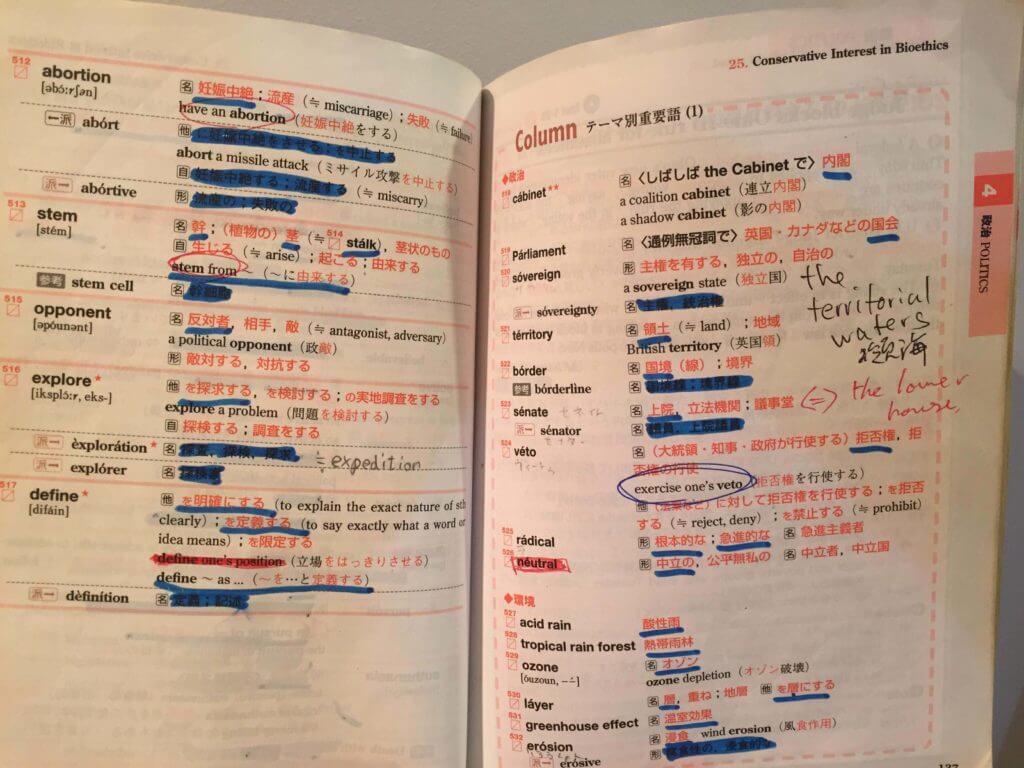 512
abortion
[əbɔ́ːrʃən]
名 妊娠中絶；流産（≒ miscarriage）；失敗（≒ failure）
have an abortion（妊娠中絶をする）
←派 abórt
他 に妊娠中絶をさせる；を中止する
abort a missile attack（ミサイル攻撃を中止する）
自 妊娠中絶する；流産する（≒ miscarry）
派→ abórtive
形 流産の；失敗の
513
stem
[stém]
名 幹；（植物の）茎（≒ 514 stálk），茎状のもの
自 生じる（≒ arise）；起こる；由来する
stem from ～（～に由来する）
参考 stem cell
名 幹細胞
515
opponent
[əpóunənt]
名 反対者，相手，敵（≒ antagonist, adversary）
a political opponent（政敵）
形 敵対する，対抗する
516
explore*
[iksplɔ́ːr, eks-]
他 を探求する，を検討する；の実地調査をする
explore a problem（問題を検討する）
自 探検する；調査をする
派→ èxplorátion*
名 探査，探検，探求
≒ expedition
派→ explórer
名 探検家
517
define*
[difáin]
他 を明確にする（to explain the exact nature of sth
clearly）；を定義する（to say exactly what a word or
idea means）；を限定する
define one's position（立場をはっきりさせる）
define ～ as ...（～を…と定義する）
派→ dèfinítion
名 定義；記述
25. Conservative Interest in Bioethics
Column テーマ別重要語 (1)
◆政治
518
cábinet**
名〈しばしば the Cabinet で〉内閣
a coalition cabinet（連立内閣）
a shadow cabinet（影の内閣）
519
Párliament
名〈通例無冠詞で〉英国・カナダなどの国会
520
sóvereign
形 主権を有する，独立の，自治の
a sovereign state（独立国）
派→ sóvereignty
名 主権，統治権
521
térritory
名 領土（≒ land）；地域
British territory（英国領）
the
territorial
waters
領海
522
bórder
名 国境（線）；境界
参考 bórderlìne
名 国境線；境界線
523
sénate
名 上院，立法機関；議事堂
⇔ the lower
house.
派→ sénator
名 議員，上院議員
524
véto
名（大統領・知事・政府が行使する）拒否権，拒
否権の行使
exercise one's veto（拒否権を行使する）
他（法案など）に対して拒否権を行使する；を拒否
する（≒ reject, deny）；を禁止する（≒ prohibit）
525
rádical
形 根本的な；急進的な 名 急進主義者
526
néutral
形 中立の，公平無私の 名 中立者，中立国
◆環境
527
acid rain
酸性雨
528
tropical rain forest
熱帯雨林
529
ozone
[óuzoun, --́]
名 オゾン
ozone depletion（オゾン破壊）
530
láyer
名 層，重ね；地層 他 を層にする
531
greenhouse effect
名 温室効果
532
erósion
名 浸食 wind erosion（風食作用）
派→ erósive
形 腐食性の，浸食的な
4
政治 POLITICS
137